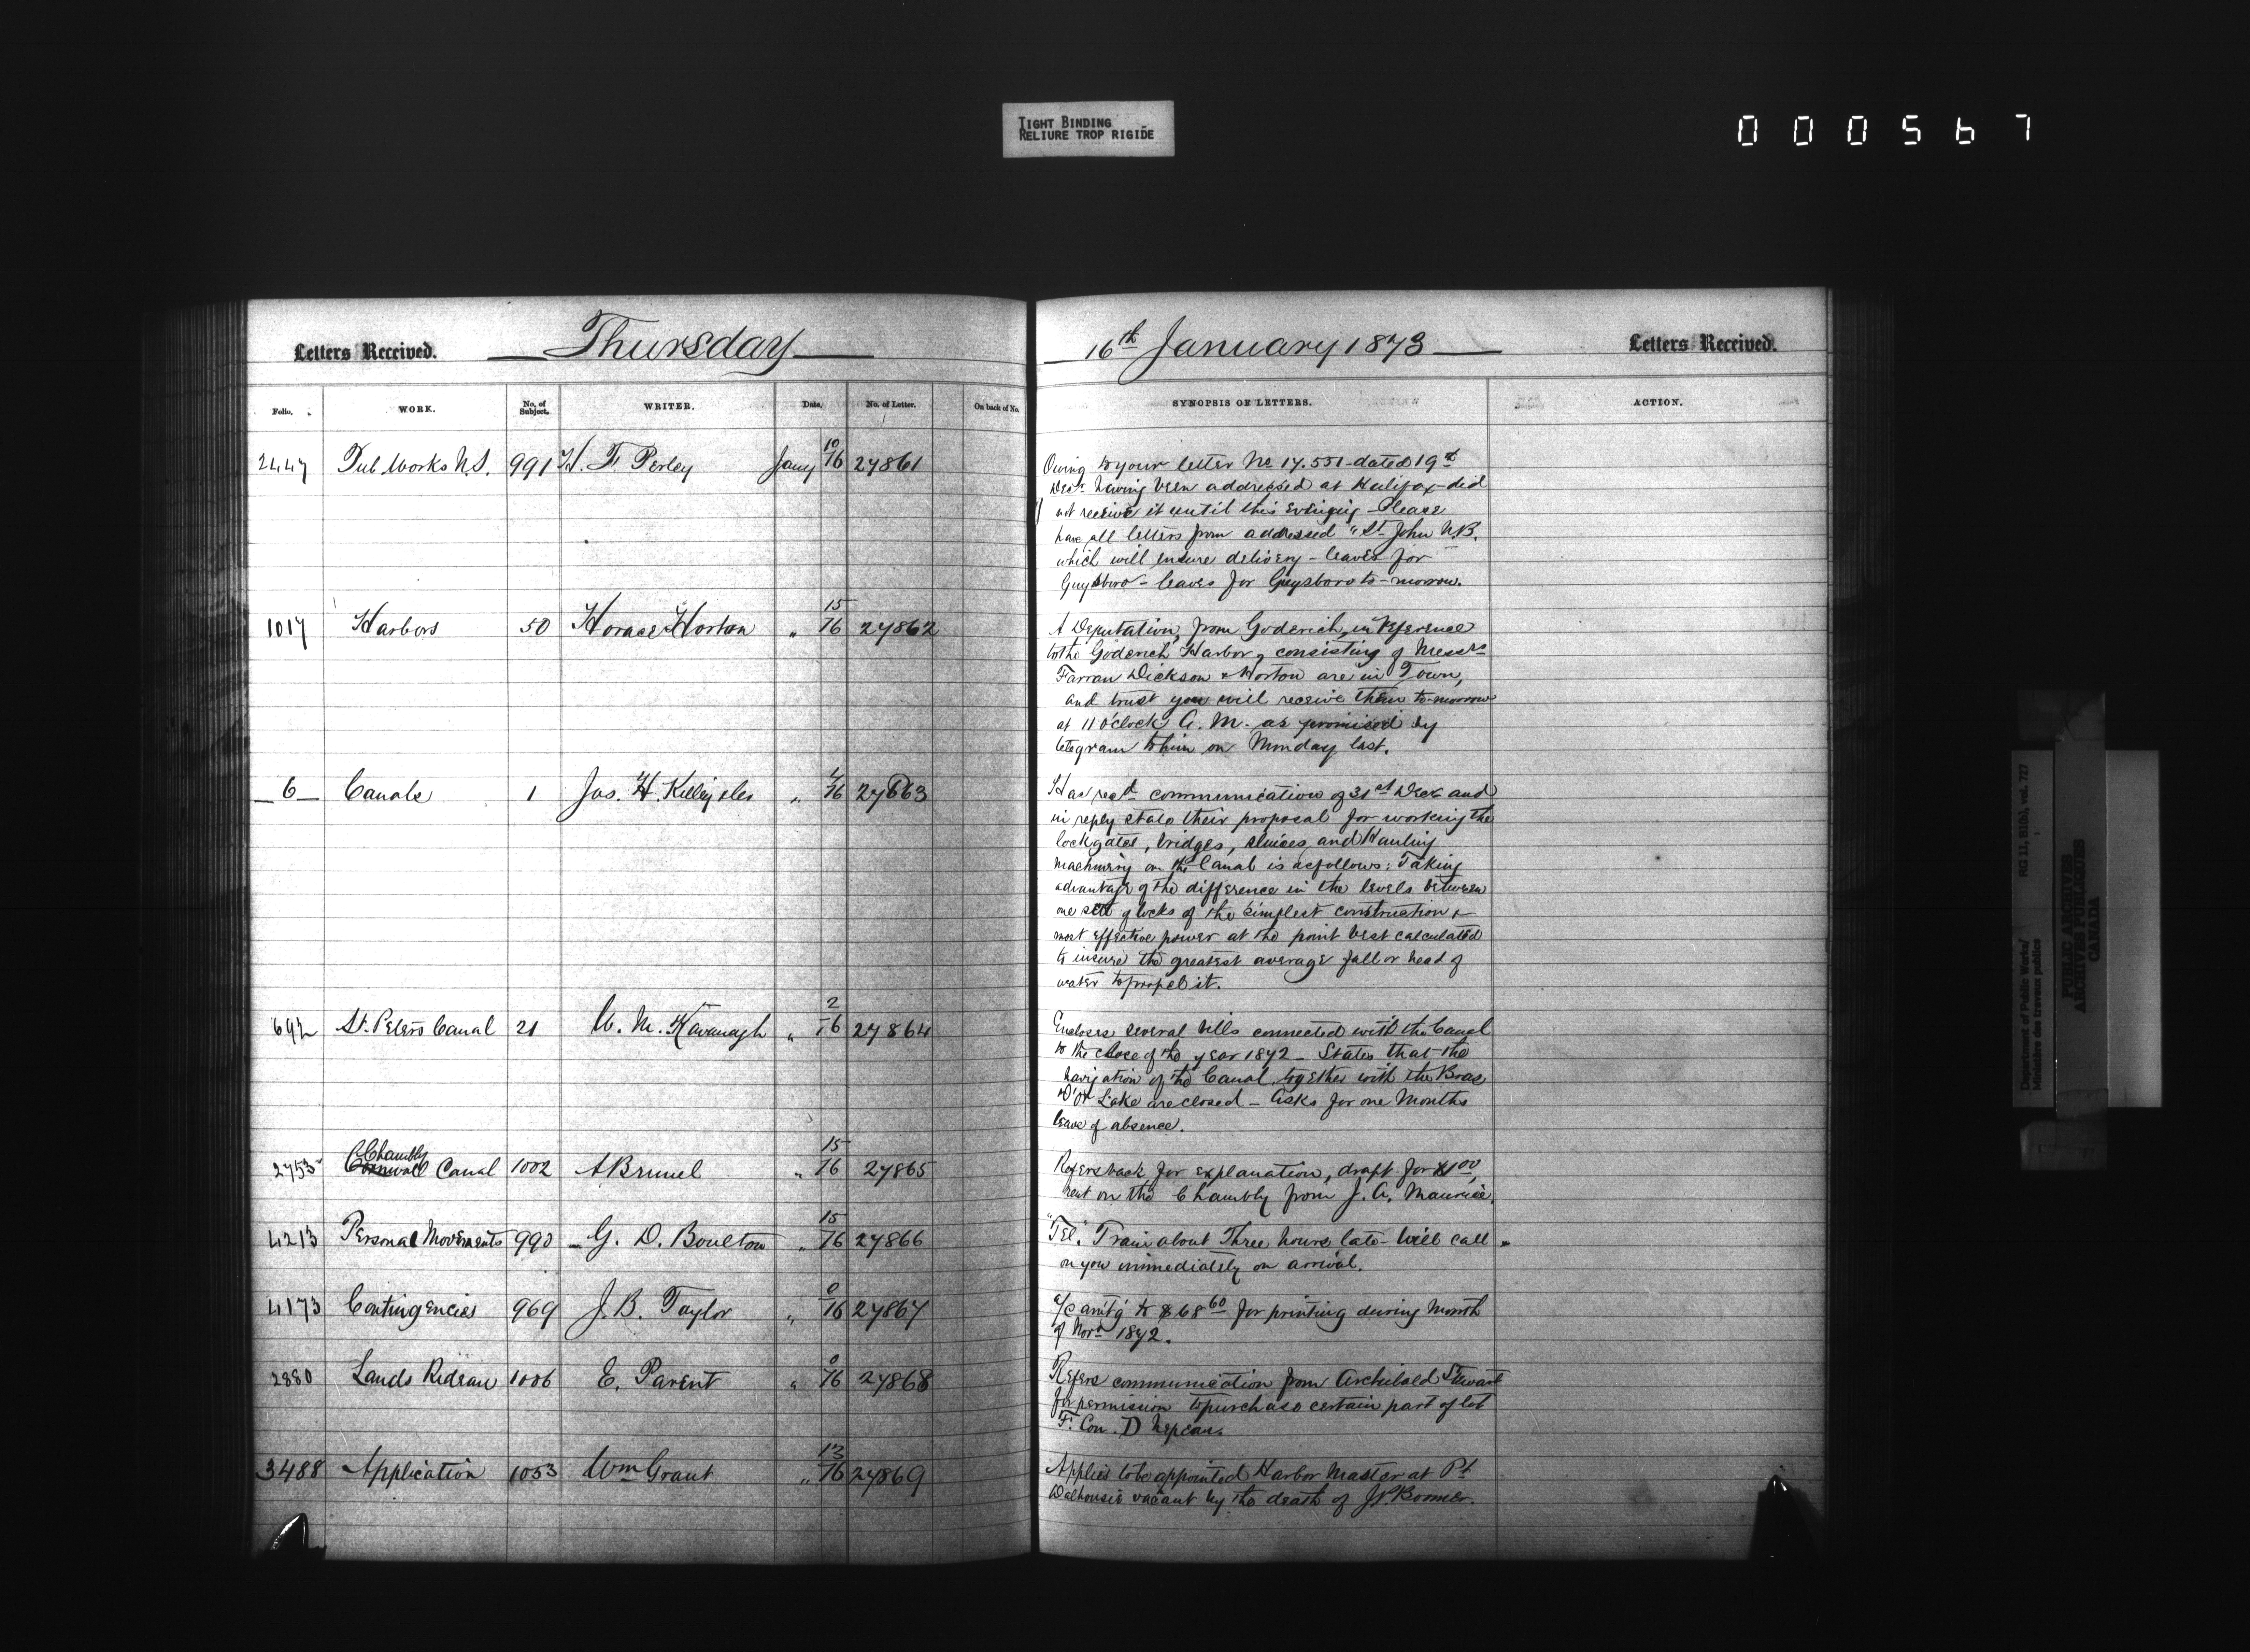 TIGHT BINDING
RELIURE TROP RIGIDE
000567
Letters Received.
Thursday
16th January 1873
Letters Received.
Folio.
WORK.
No. of Subject.
WRITER.
Date.
No. of Letter.
On back of No.
SYNOPSIS OF LETTERS.
ACTION.
2447 Pub Works N.S. 991 H. F. Perley Jany 10/16 27861
Owing to your letter No 17.551 dated 19th
Decr having been addressed at Halifax did
not receive it until this evening - Please
have all letters from addressed "St John N.B.
which will ensure delivery - leaves for
Guysboro - leaves for Guysboro to-morrow.
1017 Harbors 50 Horace Horton " 15/16 27862
A Deputation, from Goderich, in reference
to the Goderich Harbor, consisting of Messrs
Farran Dickson & Horton are in Town,
and trust you will receive them to-morrow
at 11 o'clock A. M. as promised by
telegram to him on Monday last.
6 Canals 1 Jas. H. " 4/16 27863
Has recd communication of 31st Decr and
in reply states their proposal for working the
lockgates, bridges, sluices, and Hauling
machinery on the Canal is as follows: Taking
advantage of the difference in the levels between
one set of locks of the simplest construction &
most effective power at the point best calculated
to insure the greatest average fall or head of
water to propel it.
692 St. Peters Canal 21 W. M. Kavanagh " 2/16 27864
Encloses several bills connected with the Canal
to the close of the year 1872 - States that the
navigation of the Canal, together with the Bras
D'Or Lake are closed - Asks for one Months
leave of absence.
2753 Cornwall Chambly Canal 1002 A Brunel " 15/16 27865
Refers back for explanation, draft for $1.00,
rent on the Chambly from J. A. Maurice.
4213 Personal Movements 990 G. D. Boulton " 15/16 27866
"Tel." Train about Three hours late - Will call
on you immediately on arrival.
4173 Contingencies 969 J. B. Taylor " 0/16 27867
a/c amtg to $68.60 for printing during Month
of Novr 1872.
2880 Lands Rideau 1006 E. Parent " 0/16 27868
Refers communication from Archibald Stewart
for permission to purchase certain part of lot
F. Con. D Nepean.
3488 Application 1053 Wm Grant " 13/16 27869
Applies to be appointed Harbor Master at Pt
Dalhousie vacant by the death of
Department of Public Works/
Ministère des travaux publics
RG 11, B1(b), vol. 727
PUBLIC ARCHIVES
ARCHIVES PUBLIQUES
CANADA